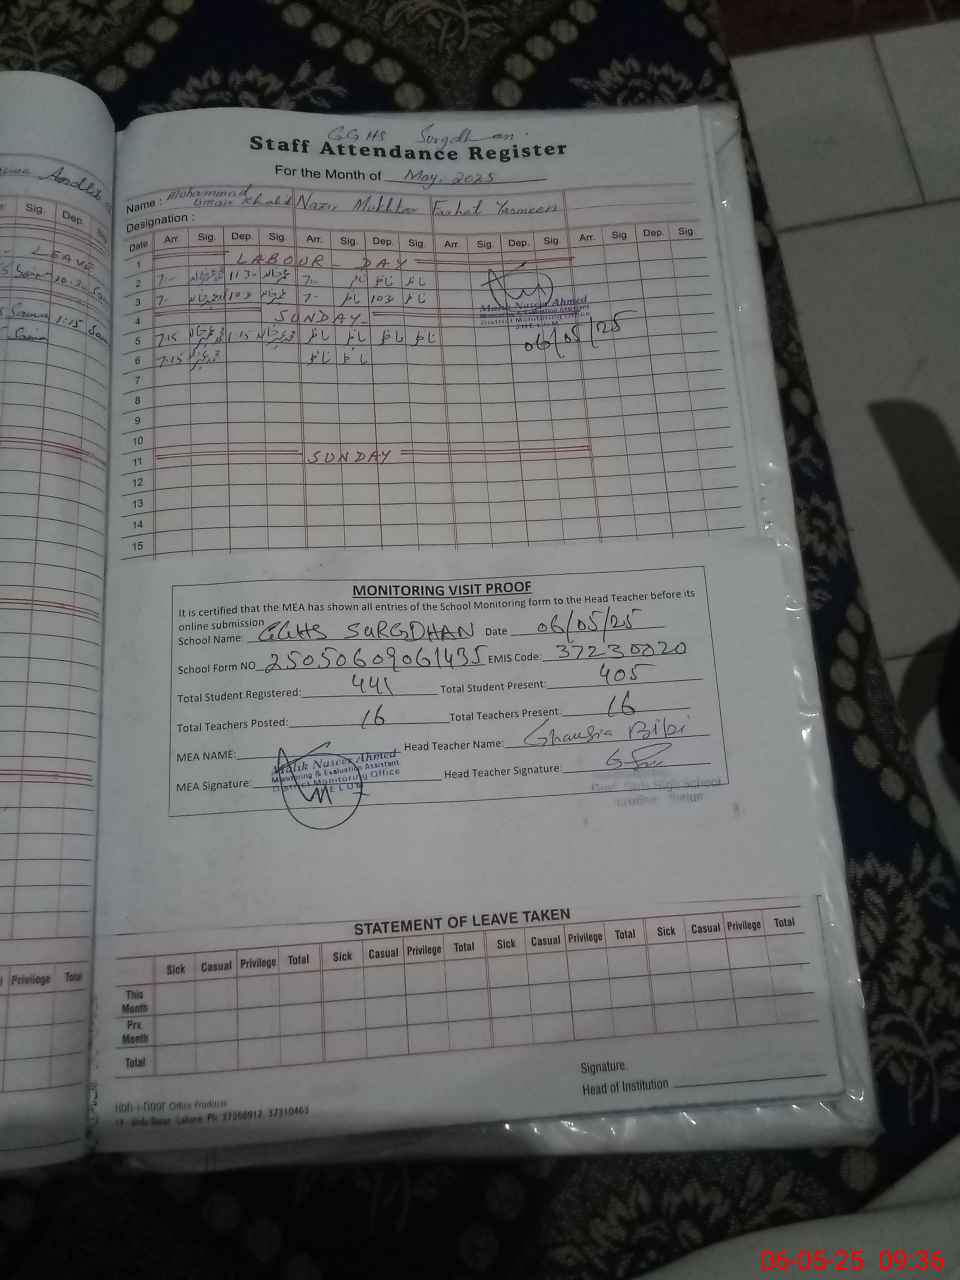 GGHS Surgdhan.
Staff Attendance Register
For the Month of May, 2025
Name : Muhammad Umair Khalid Nazir Mukhtar Farhat Yasmeen
Designation :
Date Arr. Sig. Dep. Sig. Arr. Sig. Dep. Sig. Arr. Sig. Dep. Sig. Arr. Sig. Dep. Sig.
1 LABOUR - DAY
2 7- 1130 7-
3 7- 1030 7- 1030
Malik Naseer Ahmed
Monitoring & Evaluation Assistant
District Monitoring Office
JHELUM
4 SUNDAY-
5 7:15 1:15
06/05/25
6 7:15
7
8
9
10
11 SUNDAY
12
13
14
15
MONITORING VISIT PROOF
It is certified that the MEA has shown all entries of the School Monitoring form to the Head Teacher before its
online submission
School Name GGHS SURGDHAN Date 06/05/25
School Form NO 25050609061435 EMIS Code: 37230020
Total Student Registered: 441 Total Student Present: 405
Total Teachers Posted: 16 Total Teachers Present: 16
MEA NAME: Head Teacher Name: Ghausia Bibi
Malik Naseer Ahmed
Monitoring & Evaluation Assistant
District Monitoring Office
JHELUM
MEA Signature: Head Teacher Signature:
Govt. Girls High School
STATEMENT OF LEAVE TAKEN
Sick Casual Privilege Total Sick Casual Privilege Total Sick Casual Privilege Total Sick Casual Privilege Total
This Month
Prx. Month
Total
Signature.
Head of Institution
Office Products
Urdu Bazar, Lahore. Ph: 37350912 37310463
Sig. Dep.
LEAVE
1:15
Privilege Total
06-05-25 09:36